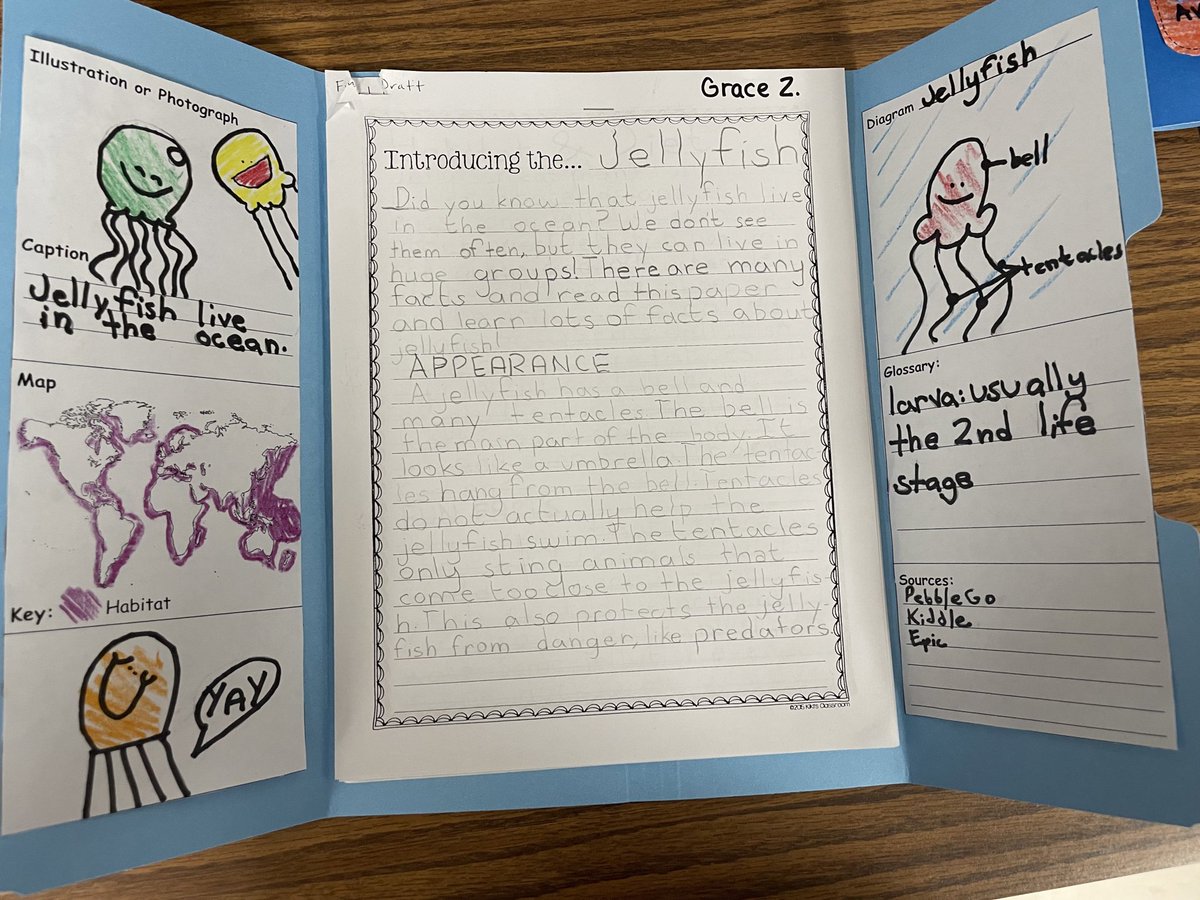 Illustration or Photograph
Caption
Jellyfish live
in the ocean.
Map
Key:
Habitat
YAY
Draft
Grace Z.
Introducing the... Jellyfish
Did you know that jellyfish live
in the ocean? We dont see
them often, but they can live in
huge groups! There are many
facts and read this paper
and learn lots of facts about
jellyfish!
APPEARANCE
A jellyfish has a bell and
many tentacles. The bell is
the main part of the body. It
looks like a umbrella. The tentac
les hang from the bell. Tentacles
do not actually help the
jellyfish swim. The tentacles
only sting animals that
come too close to the jellyfis-
h. This also protects the jelly-
fish from danger, like predators.
©2015 Kiki's Classroom
Diagram Jellyfish
bell
tentacles
Glossary:
larva: usually
the 2nd life
stage
Sources:
PebbleGo
Kiddle
Epic